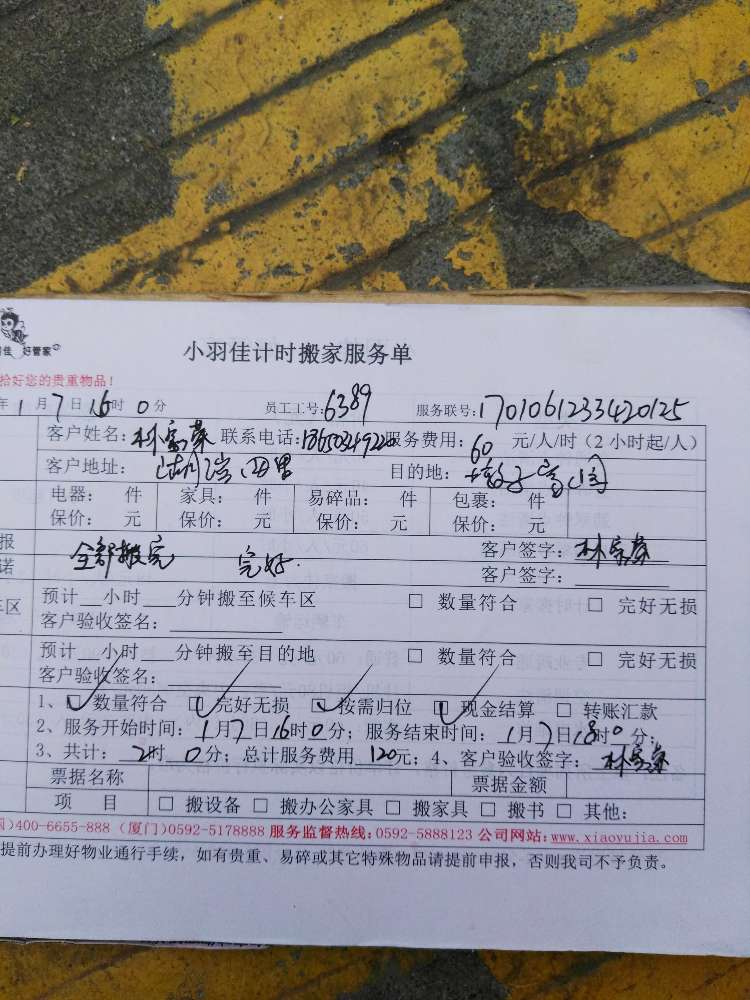 佳 好管家
小羽佳计时搬家服务单
拾好您的贵重物品！
年1月7日16时0分 员工工号：6389 服务联号：1701061233420125
客户姓名：林 联系电话： 服务费用：60元/人/时（2小时起/人）
客户地址： 目的地：
电器： 件 家具： 件 易碎品： 件 包裹： 件
保价： 元 保价： 元 保价： 元 保价： 元
报 全部搬完 完好. 客户签字：林
诺 客户签字：
车区 预计__小时__分钟搬至候车区 □ 数量符合 □ 完好无损
客户验收签名：
预计__小时__分钟搬至目的地 □ 数量符合 □ 完好无损
客户验收签名：
1、☑ 数量符合 ☑ 完好无损 ☑ 按需归位 ☑ 现金结算 □ 转账汇款
2、服务开始时间：1月7日16时0分；服务结束时间：1月7日18时0分；
3、共计：2时0分；总计服务费用 120元；4、客户验收签字：林
票据名称 票据金额
项 目 □ 搬设备 □ 搬办公家具 □ 搬家具 □ 搬书 □ 其他：
)400-6655-888 (厦门)0592-5178888 服务监督热线:0592-5888123 公司网站:www.xiaoyujia.com
提前办理好物业通行手续，如有贵重、易碎或其它特殊物品请提前申报，否则我司不予负责。